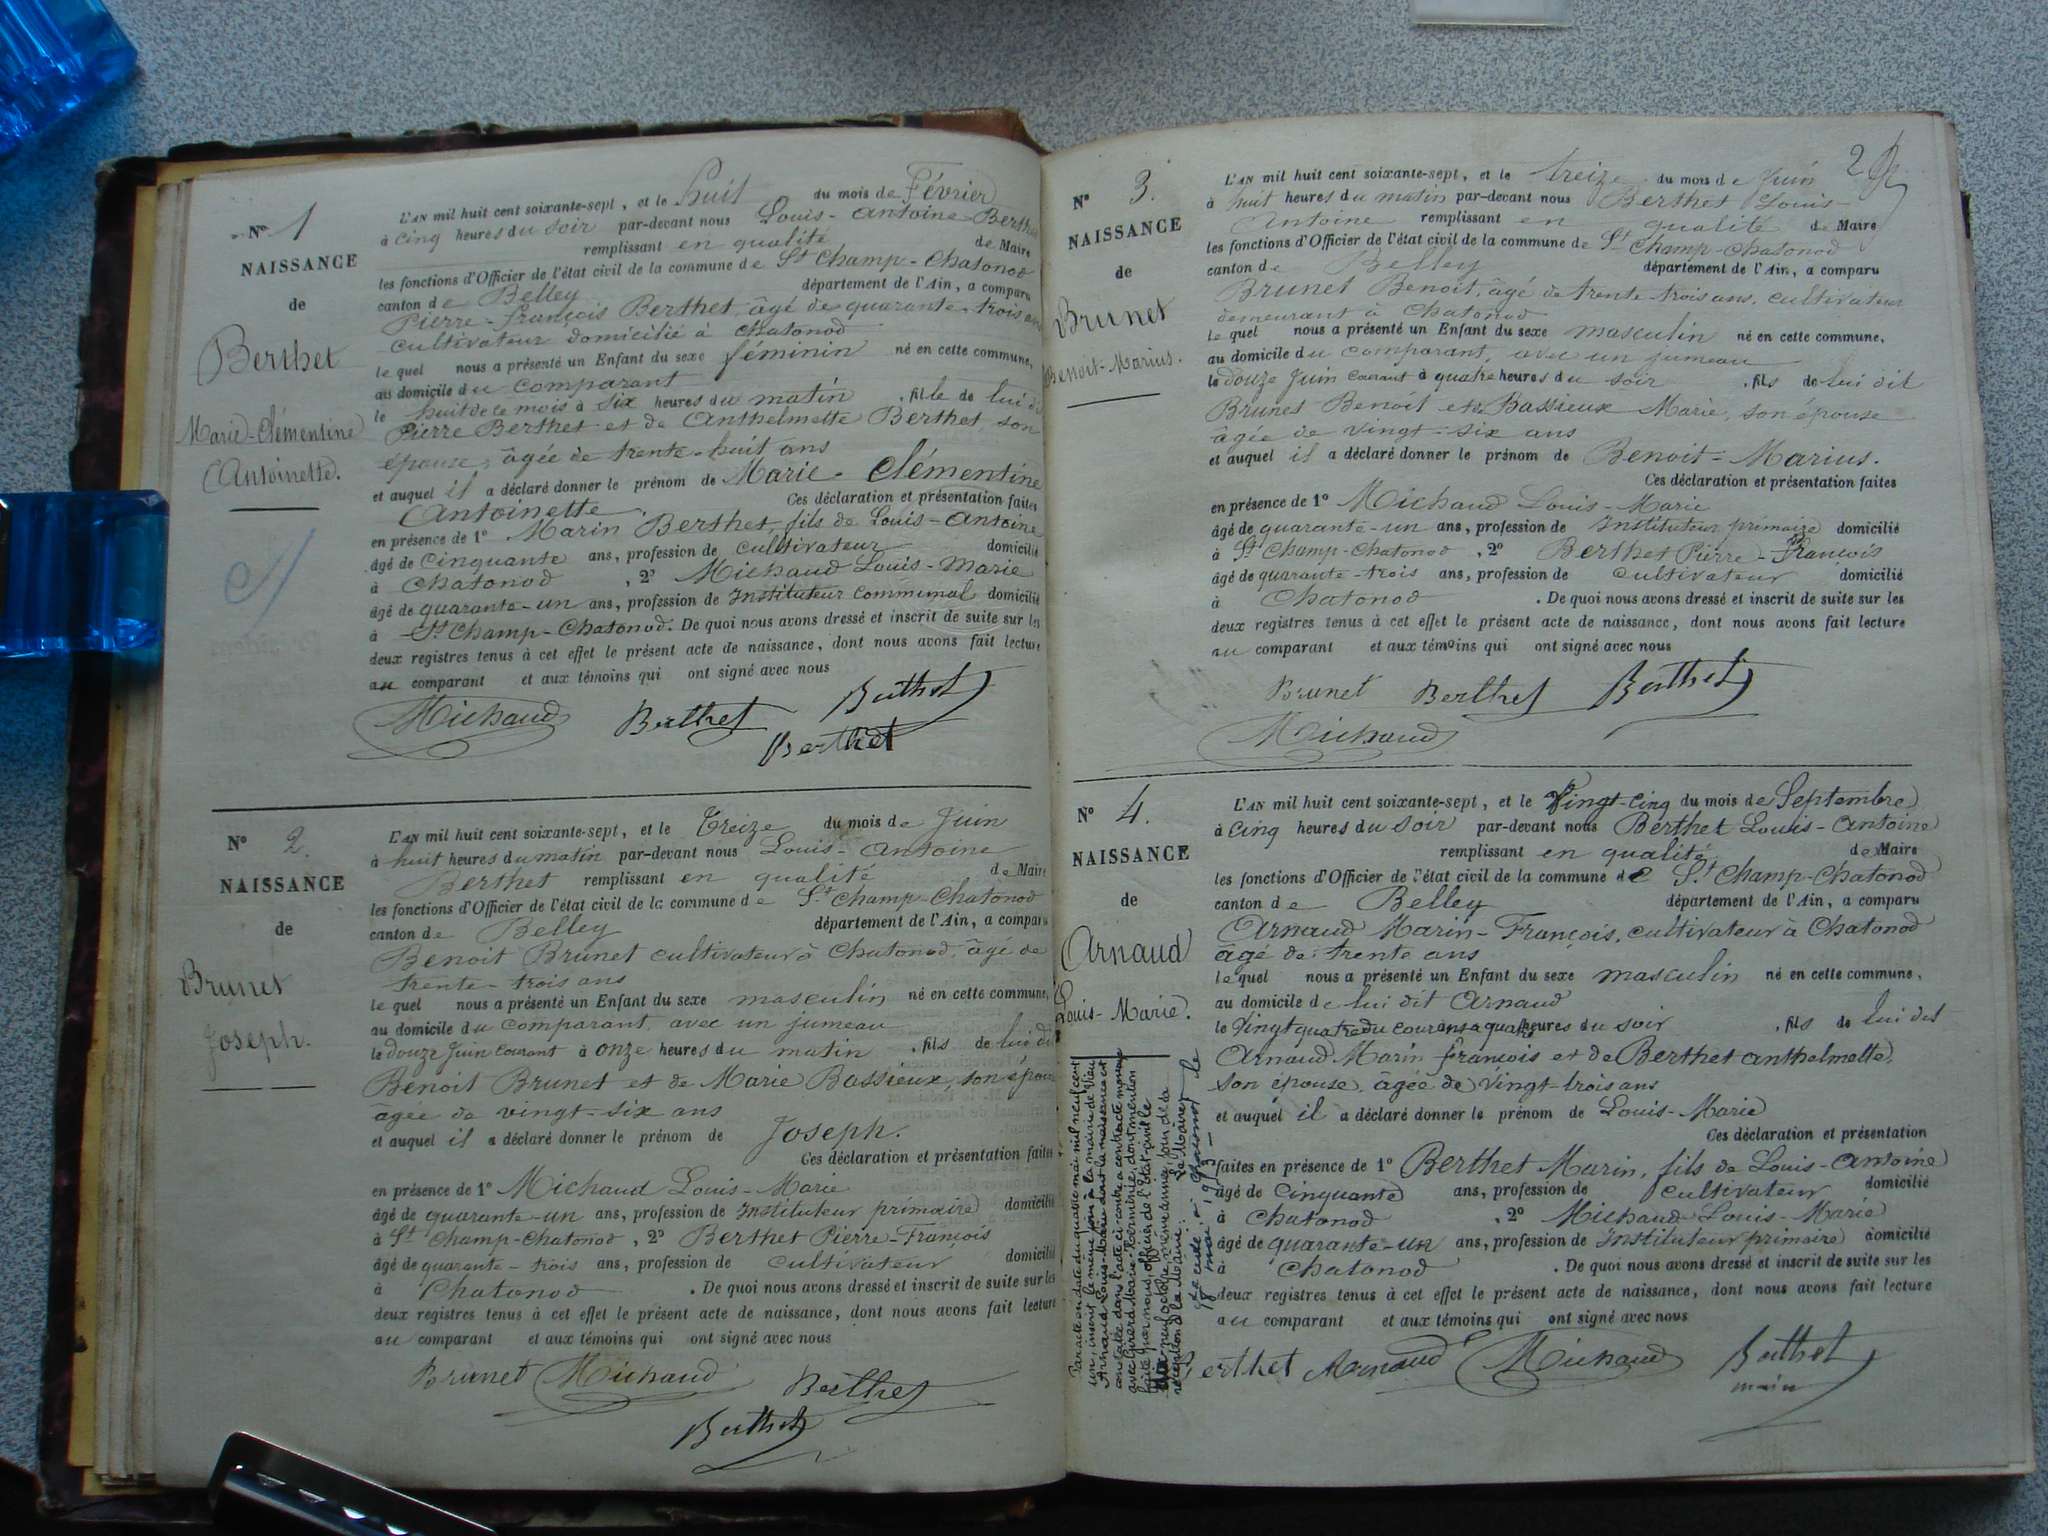 N° 1
NAISSANCE
de
Berthet
Marie-Clémentine
Antoinette.
L'AN mil huit cent soixante-sept, et le huit du mois de Février
à cinq heures du soir par-devant nous Louis-Antoine Berthet
remplissant en qualité de Maire
les fonctions d'Officier de l'état civil de la commune de St Champ-Chatonod
canton de Belley département de l'Ain, a comparu
Pierre-françois Berthet, âgé de quarante-trois ans
cultivateur domicilié à Chatonod
le quel nous a présenté un Enfant du sexe féminin né en cette commune,
au domicile du comparant
le huit de ce mois à six heures du matin, fille de lui dit
Pierre Berthet et de Anthelmette Berthet, son
épouse, âgée de trente-huit ans
et auquel il a déclaré donner le prénom de Marie-Clémentine
Antoinette. Ces déclaration et présentation faites
en présence de 1° Marin Berthet, fils de Louis-Antoine
âgé de cinquante ans, profession de cultivateur domicilié
à Chatonod, 2° Michaud Louis-Marie
âgé de quarante-un ans, profession de Instituteur communal domicilié
à St Champ-Chatonod. De quoi nous avons dressé et inscrit de suite sur les
deux registres tenus à cet effet le présent acte de naissance, dont nous avons fait lecture
au comparant et aux témoins qui ont signé avec nous
Michaud Berthet Berthet
Berthet
N° 2.
NAISSANCE
de
Brunet
Joseph.
L'AN mil huit cent soixante-sept, et le Treize du mois de Juin
à huit heures du matin par-devant nous Louis-Antoine
Berthet remplissant en qualité de Maire
les fonctions d'Officier de l'état civil de la commune de St Champ-Chatonod
canton de Belley département de l'Ain, a comparu
Benoit Brunet cultivateur à Chatonod, âgé de
trente-trois ans
le quel nous a présenté un Enfant du sexe masculin né en cette commune,
au domicile du comparant, avec un jumeau
le douze Juin courant à onze heures du matin, fils de lui dit
Benoit Brunet et de Marie Bassieux, son épouse
âgée de vingt-six ans
et auquel il a déclaré donner le prénom de Joseph.
Ces déclaration et présentation faites
en présence de 1° Michaud Louis-Marie
âgé de quarante-un ans, profession de Instituteur primaire domicilié
à St Champ-Chatonod, 2° Berthet Pierre-François
âgé de quarante-trois ans, profession de cultivateur domicilié
à Chatonod. De quoi nous avons dressé et inscrit de suite sur les
deux registres tenus à cet effet le présent acte de naissance, dont nous avons fait lecture
au comparant et aux témoins qui ont signé avec nous
Brunet Michaud Berthet
Berthet
2
N° 3.
NAISSANCE
de
Brunet
Benoit-Marius.
L'AN mil huit cent soixante-sept, et le treize du mois de Juin
à huit heures du matin par-devant nous Berthet Louis-
Antoine remplissant en qualité de Maire
les fonctions d'Officier de l'état civil de la commune de St Champ-Chatonod
canton de Belley département de l'Ain, a comparu
Brunet Benoit, âgé de trente-trois ans, cultivateur
demeurant à Chatonod
le quel nous a présenté un Enfant du sexe masculin né en cette commune,
au domicile du comparant, avec un jumeau
le douze Juin courant à quatre heures du soir, fils de lui dit
Brunet Benoit et de Bassieux Marie, son épouse
âgée de vingt-six ans
et auquel il a déclaré donner le prénom de Benoit-Marius.
Ces déclaration et présentation faites
en présence de 1° Michaud Louis-Marie
âgé de quarante-un ans, profession de Instituteur primaire domicilié
à St Champ-Chatonod, 2° Berthet Pierre-François
âgé de quarante-trois ans, profession de cultivateur domicilié
à Chatonod. De quoi nous avons dressé et inscrit de suite sur les
deux registres tenus à cet effet le présent acte de naissance, dont nous avons fait lecture
au comparant et aux témoins qui ont signé avec nous
Brunet Berthet Berthet
Michaud
N° 4.
NAISSANCE
de
Arnaud
Louis-Marie.
L'AN mil huit cent soixante-sept, et le Vingt-cinq du mois de Septembre
à cinq heures du soir par-devant nous Berthet Louis-Antoine
remplissant en qualité de Maire
les fonctions d'Officier de l'état civil de la commune de St Champ-Chatonod
canton de Belley département de l'Ain, a comparu
Arnaud Marin-François, cultivateur à Chatonod
âgé de trente ans
le quel nous a présenté un Enfant du sexe masculin né en cette commune,
au domicile de lui dit Arnaud
le Vingt quatre du courant à quatre heures du soir, fils de lui dit
Arnaud Marin françois et de Berthet anthelmette,
son épouse, âgée de vingt-trois ans
et auquel il a déclaré donner le prénom de Louis-Marie
Ces déclaration et présentation
faites en présence de 1° Berthet Marin, fils de Louis-Antoine
âgé de cinquante ans, profession de cultivateur domicilié
à Chatonod, 2° Michaud Louis-Marie
âgé de quarante-un ans, profession de Instituteur primaire domicilié
à Chatonod. De quoi nous avons dressé et inscrit de suite sur les
deux registres tenus à cet effet le présent acte de naissance, dont nous avons fait lecture
au comparant et aux témoins qui ont signé avec nous
Berthet Arnaud Michaud Berthet
maire
Par acte en date du quatre mai mil neuf cent
inscrit le même jour à la mairie de Vieu
Arnaud Louis-Marie dont la naissance est
constatée dans l'acte ci-contre a contracté mariage
avec Marie-Herminie, dont mention
faite par nous, officier de l'État-civil le
neuf octobre même année, jour de la
réception de la Mairie. Le Maire,
Décédé à le
18 mai 1913